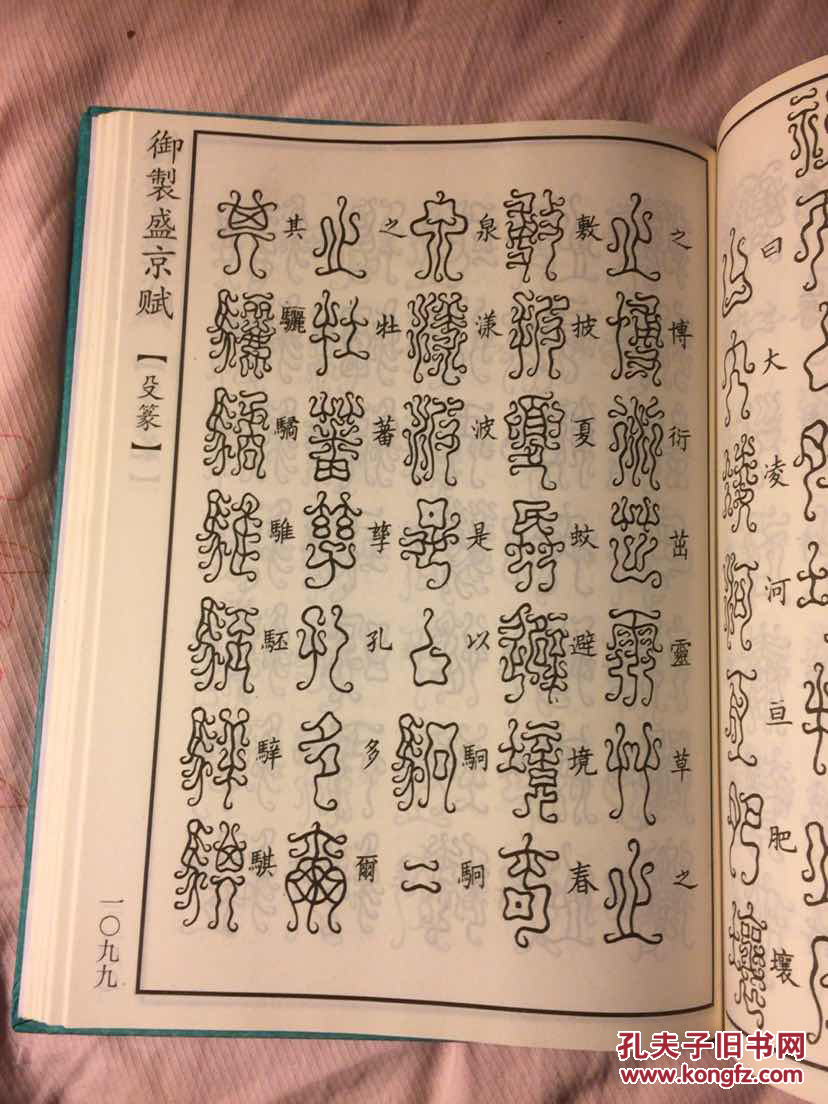 曰大凌河亘肥壤
之博衍茁靈草之
敷披夏蚊避境春
泉漾波是以駉駉
之牡蕃孳孔多爾
其驪驈騅駓騂騏
御製盛京赋【殳篆】
一〇九九
孔夫子旧书网
www.kongfz.com